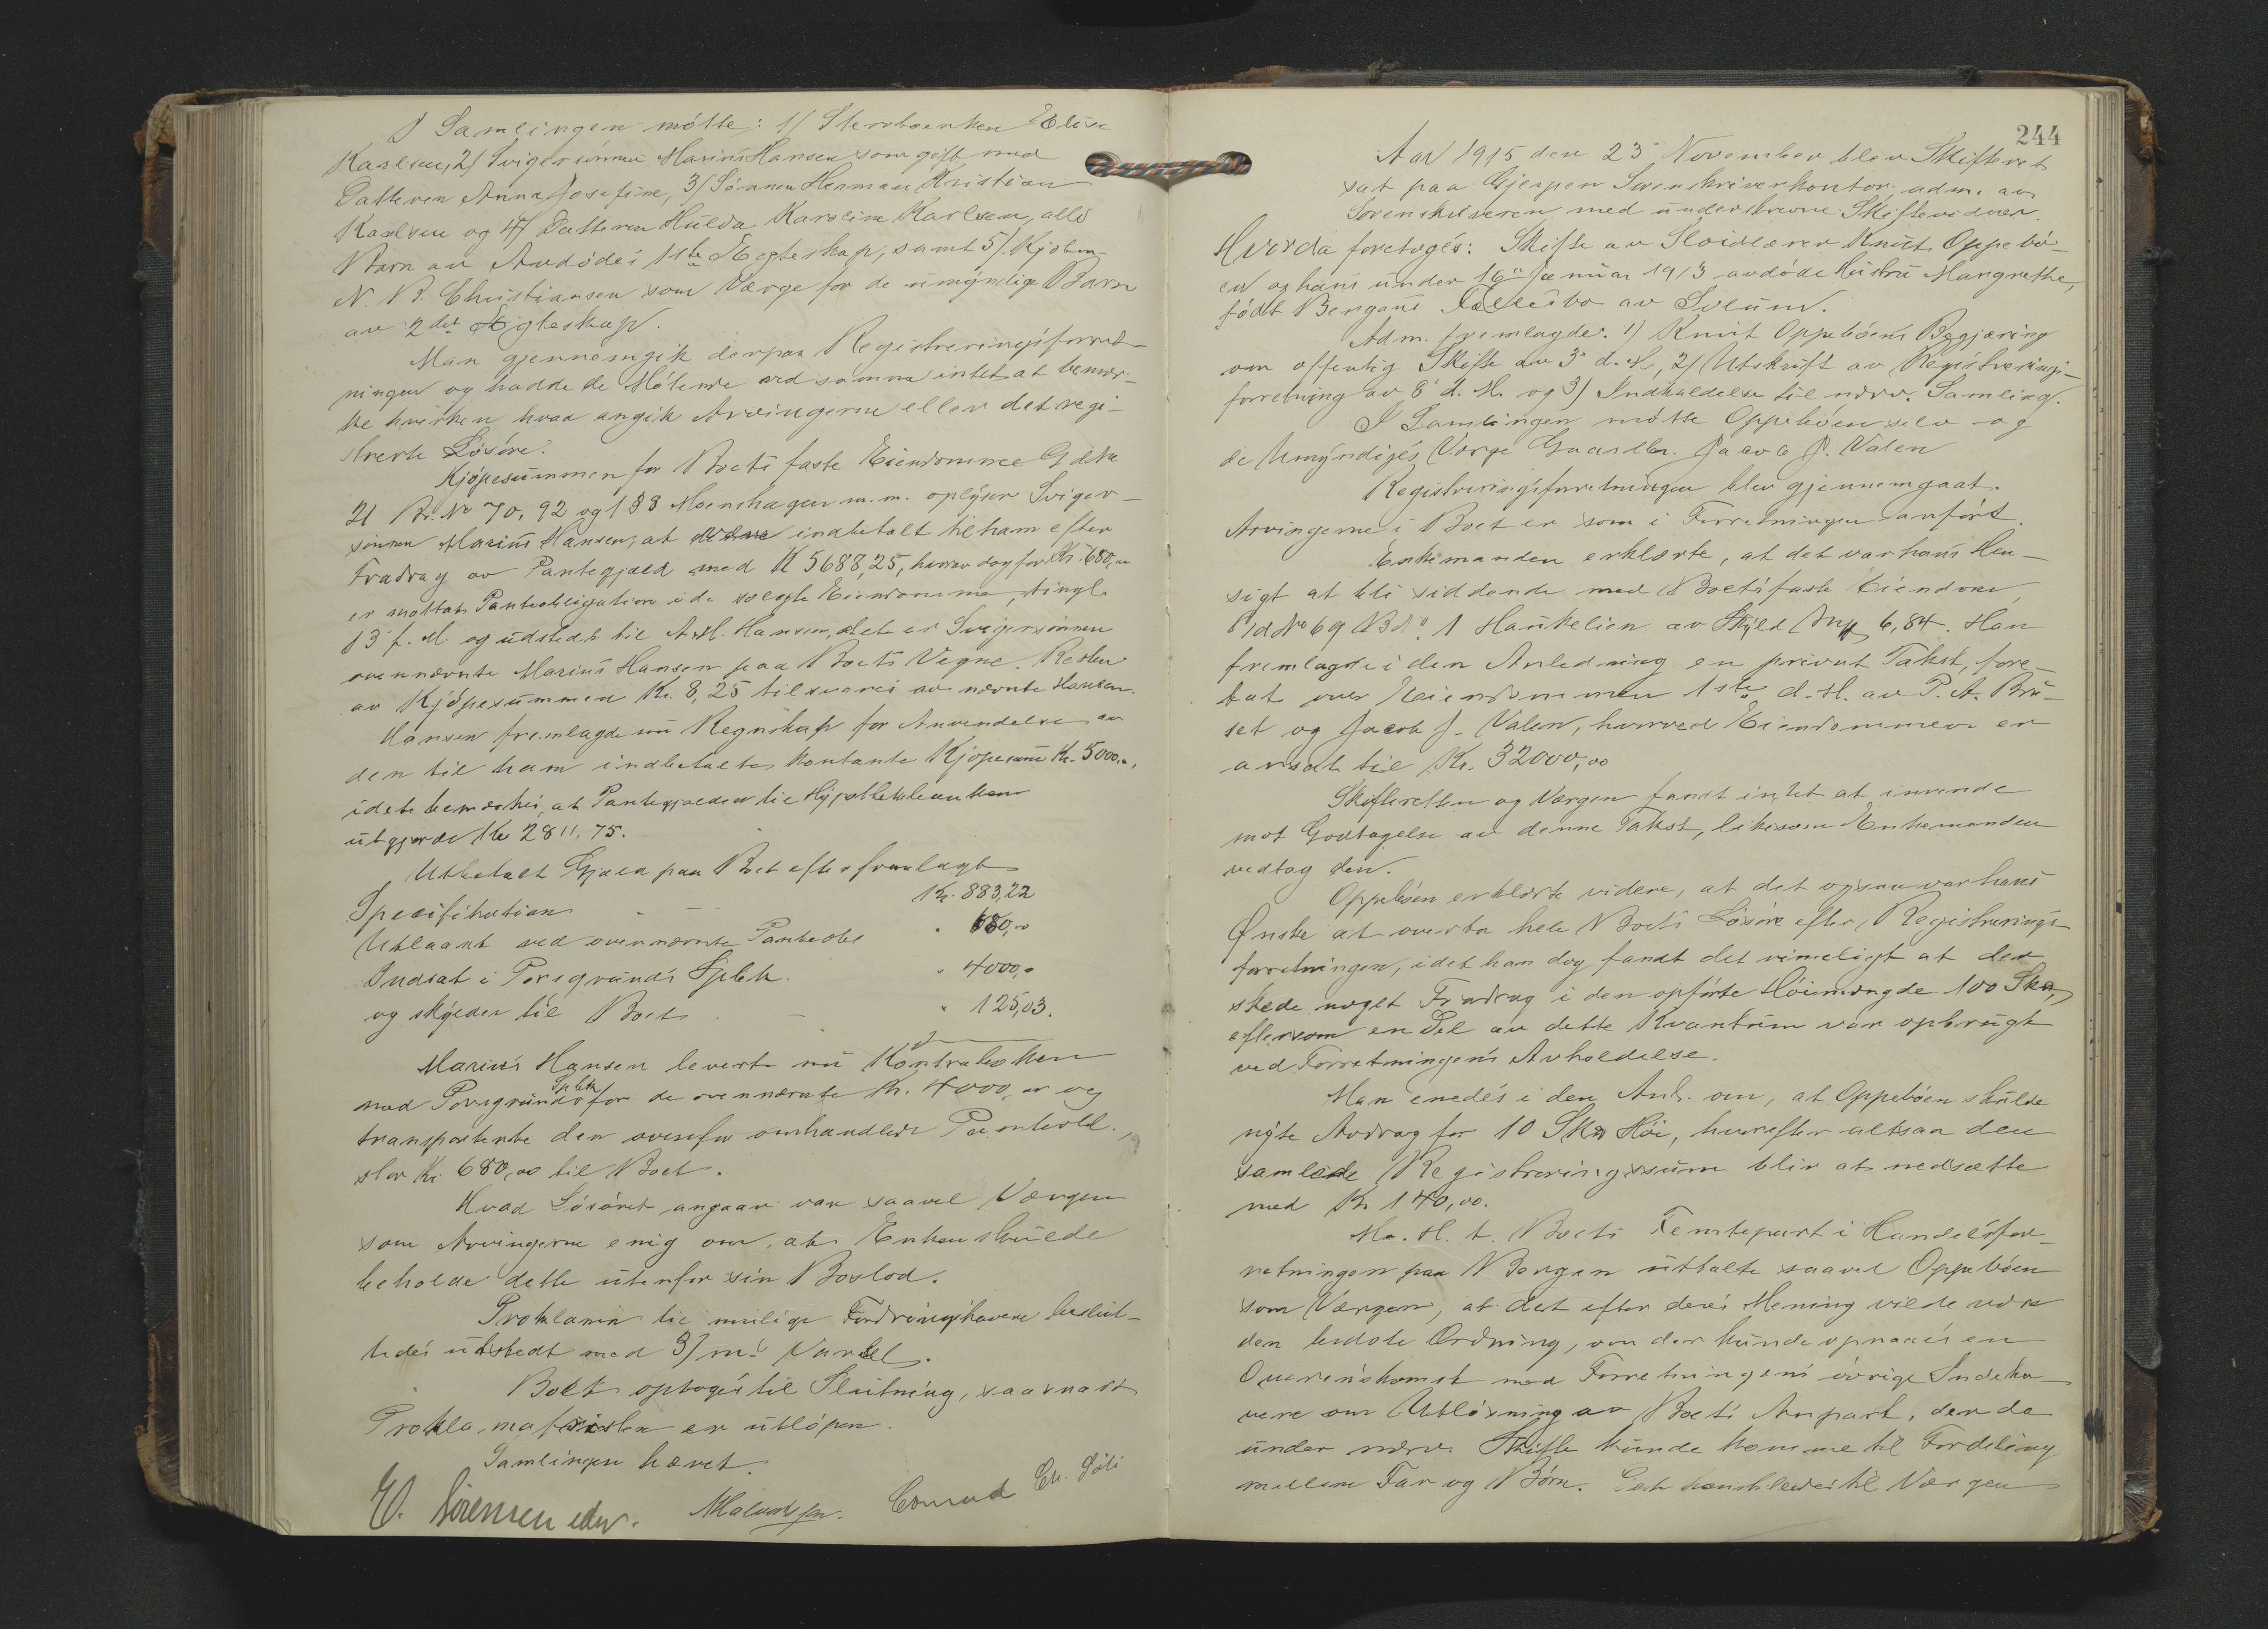 I Samlingen mötte: 1/ Sterboenken Elise
Karlsen, 2/ Svigersönnen Marius Hansen som gift med
Datteren Anna Josefine, 3/ Sönnen Herman Kristian
Karlsen og 4/ Datteren Hulda Karoline Karlsen, alle
Barn av Avdödes 1ste Egteskap, samt 5/ Kjöbm.
N. B. Christiansen som Værge for de umyndige Barn
av 2det Egteskap.
Man gjennemgik derpaa Registreringsforret-
ningen og hadde de Mötende ved samme intet at bemær-
ke hverken hvad angik Arvingerne eller det regi-
strerte Lösöre.
Kjöpesummen for Boets faste Eiendomme G. No
21 Br. No 70, 92 og 188 Moenshagen m.m. oplyser Sviger-
sönnen Marius Hansen, at være indbetalt til ham efter
Fradrag av Pantegjæld med K 5688,25, hvorav dog for Kr. 680,00
er mottat Panteobligation i de solgte Eiendomme, tingl.
13 f. M. og udstedt til A. M. Hansen, det er Svigersönnen
ovennævnte Marius Hansen paa Boets Vegne. Resten
av Kjöpesummen Kr. 8,25 tilsvares av nævnte Hansen.
Hansen fremlagde nu Regnskap for Anvendelse av
den til ham indbetalte kontante Kjöpesum Kr. 5000,00,
idet bemærkes, at Pantegjælden til Hypothekbanken
utgjorde Kr 2811.75.
Utbetalt Gjæld paa Boet efter fremlagt
Specifikation - - Kr. 883,22
Utlaant ved ovennævnte Panteobl " 680,00
Indsat i Porsgrunds Spbk. " 4000,00
og skylder til Boet - " 125,03.
Marius Hansen leverte nu Kontraboken
med Porsgrunds Spbk for de ovennævnte Kr. 4000,00 og
transporterte den ovenfor omhandlede Panteobl.,
stor Kr. 680,00 til Boet.
Hvad Lösöret angaar var saavel Værgen
som Arvingerne enig om, at Enken skulde
beholde dette utenfor sin Boslod.
Proklama til mulige Fordringshavere beslut-
tedes utstedt med 3/m's Varsel.
Boet optoges til Slutning, saasnart
Proklamafristen er utlöpen.
Samlingen hævet.
E. Sörensen edv. Conrad Chr.
244
Aar 1915 den 23 November blev Skifteret
sat paa Gjerpen Sorenskriverkontor, adm. av
Sorenskriveren med underskrevne Skiftevidner.
Hvorda foretoges: Skifte av Sloidlærer Knut Oppebö-
en og hans under 16 Januar 1913 avdöde Hustru Margrethe,
född Bergans Fællesbo av Solum.
Adm. fremlagde: 1) Knut Oppeböens Begjæring
om offentlig Skifte av 3 d. M., 2/ Utskrift av Registrerings-
forretning av 8 d. M. og 3) Indkaldelse til nærv. Samling.
I Samlingen mötte Oppeböen selv og
de Umyndiges Værge Gaardbr. Jacob J. Valen
Registreringsforretningen blev gjennemgaat.
Arvingerne i Boet er som i Forretningen anfört.
Enkemanden erklærte, at det var hans Hen-
sigt at bli siddende med Boets faste Eiendom,
Gd No 69 B No 1 Haukelien av Skyld Mrk 6,84. Han
fremlagde i den Anledning en privat Takst, fore-
tat over Eiendommen 1ste d. M. av P. A. Bru-
set og Jacob J. Valen, hvorved Eiendommen er
ansat til Kr. 32000,00
Skifteretten og Værgen fandt intet at invende
mot Godtagelse av denne Takst, likesom Enkemanden
vedtog den.
Oppeböen erklærte videre, at det ogsaa var hans
Ønske at overta hele Boets Lösöre efter Registrerings-
forretningen, idet han dog fandt det rimeligt at der
skede noget Fradrag i den opförte Höimængde 100 Skp,
eftersom en Del av dette Kvantum var opbrugt
ved Forretningens Avholdelse.
Man enedes i den Anl. om, at Oppeböen skulde
nyte Avdrag for 10 Skp Höi, hvorefter altsaa den
samlede Registreringssum blir at nedsætte
med Kr 140,00.
M. H. t. Boets Femtepart i Handelsfor-
retningen paa Borgen uttalte saavel Oppeböen
som Værgen, at det efter deres Mening vilde være
den bedste Ordning, om der kunde opnaaes en
Overenskomst med Forretningens övrige Indeha-
vere om Utlösning av Boets Anpart, der da
under nærv. Skifte kunde komme til Fordeling
mellem Far og Börn. Det henstilledes til Værgen